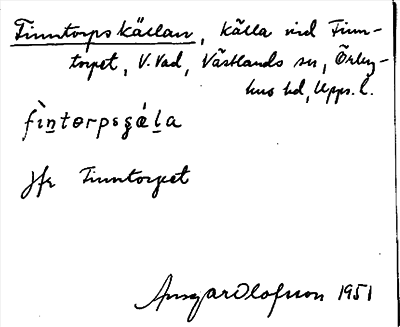 Finntorpskällan, källa vid Finn-
torpet, V. Vad, Västlands sn, Örby-
hus hd, Upps. l.
fìntorpsʂála
jfr Finntorpet
Ansgar Olofsson 1951